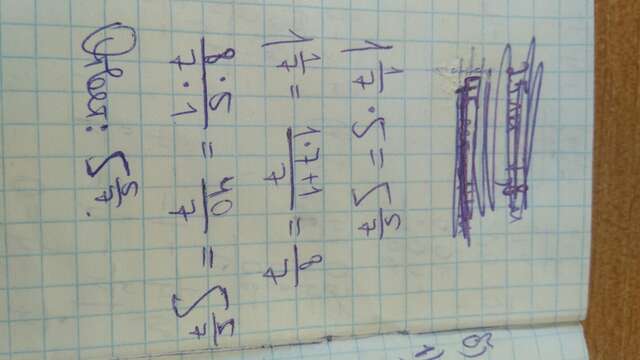 1 1/7 · 5 = 5 5/7
1 1/7 = (1·7+1)/7 = 8/7
(8·5)/(7·1) = 40/7 = 5 5/7
Ответ: 5 5/7.